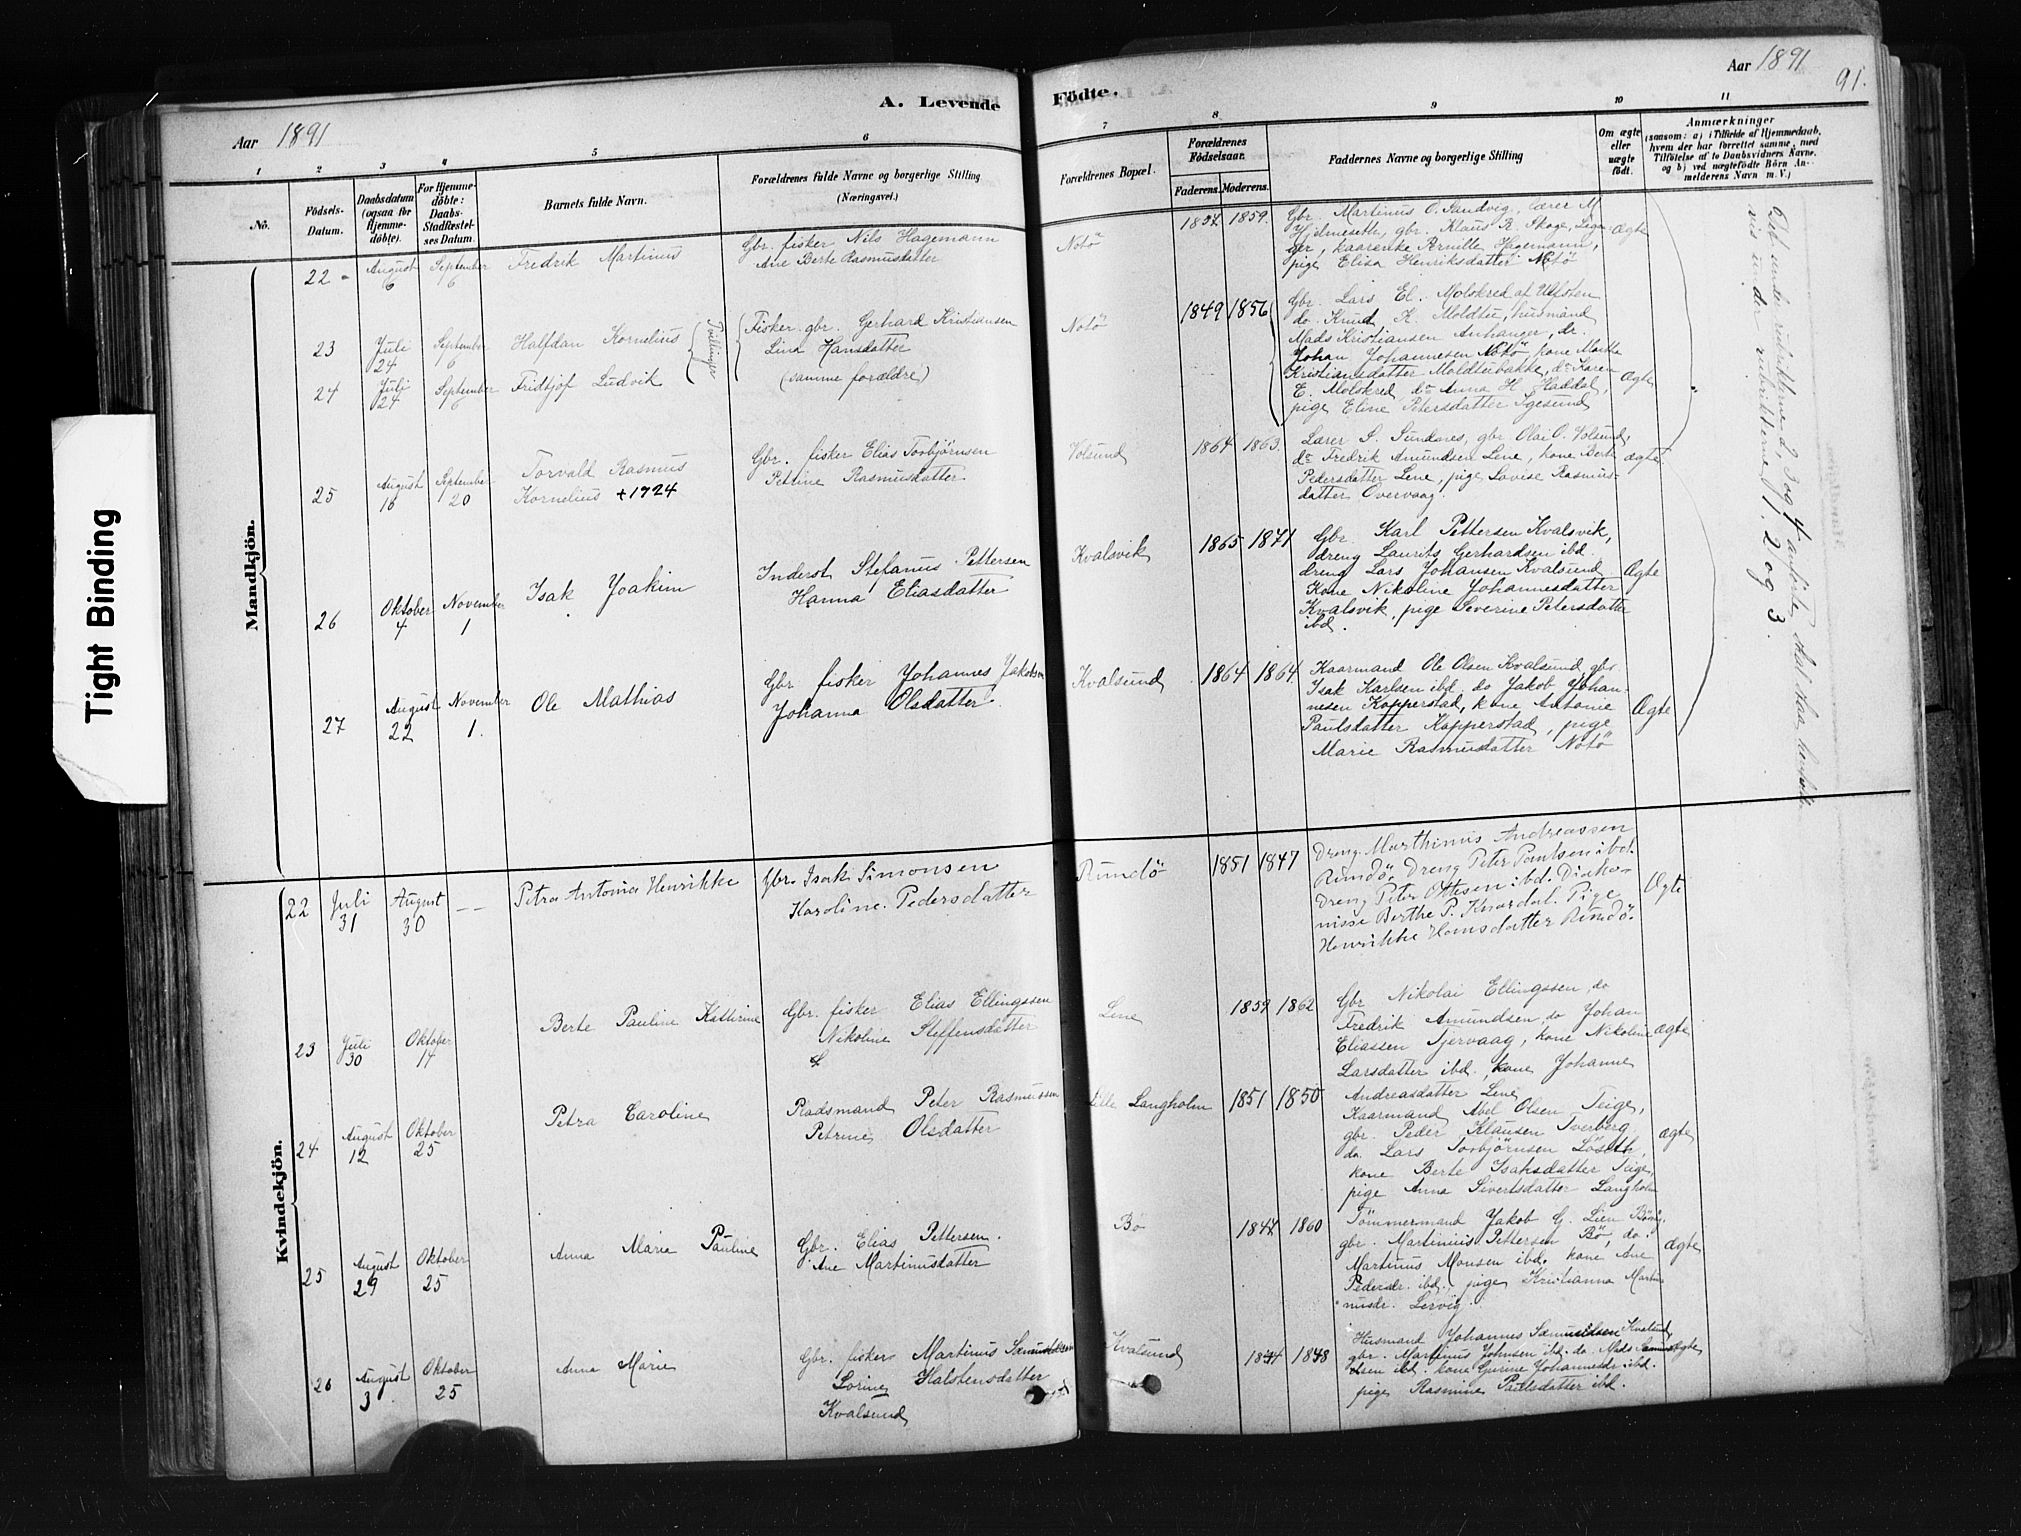 Tight Binding
A. Levende
Aar 1891
1
2
3
4
5
6
No.
Födsels-
Datum.
Daabsdatum
(ogsaa for
Hjemme-
döbte).
For Hjemme-
döbte:
Daabs-
Stadfæstel-
ses Datum.
Barnets fulde Navn.
Forældrenes fulde Navne og borgerlige Stilling
(Næringsvei.)
Mandkjön.
22 August 6 September 6 Fredrik Martinus
Gbr. fisker Nils Hagemann
Ane Berte Rasmusdatter
23 Juli 24 September 6 Halfdan Kornelius
Tvillinger
Fisker gbr. Gerhard Kristiansen
Lina Hansdatter
24 Juli 24 September 6 Fridtjof Ludvik
(samme forældre)
25 August 16 September 20 Torvald Rasmus
Kornelius + 1924
Gbr. fisker Elias Torbjörnsen
Pettine Rasmusdatter
26 Oktober 4 November 1 Isak Joakim
Inderst Stefanus Pettersen
Hanna Eliasdatter
27 August 22 November 1. Ole Mathias
Gbr. fisker Johannes Jakobsen
Johanna Olsdatter
Kvindekjön.
22 Juli 31 August 30 – – Petra Antonia Henrikke
Gbr. Isak Simonsen
Karoline Pedersdatter
23 Juli 30 Oktober 14 Berte Pauline Kathrine
Gbr. fisker Elias Ellingssen
Nikoline Steffensdatter
24 August 12 Oktober 25 Petra Caroline
Radsmand Peter Rasmussen
Petrine Olsdatter
25 August 29 Oktober 25 Anna Maria Pauline
Gbr. Elias Pettersen.
Ane Martinusdatter
26 August 31 Oktober 25 Anna Marie
Gbr. fisker Martinus
Lorine Halstensdatter
Kvalsund
Födte.
Aar 1891
91.
7
8
9
10
11
Forældrenes Bopæl.
Forældrenes
Födselsaar.
Faderens. Moderens.
Faddernes Navne og borgerlige Stilling
Om ægte
eller
uægte
født.
Anmærkninger
(saasom: a) i Tilfælde af Hjemmedaab,
hvem der har forrettet samme, med
Tilföielse af to Daabsvidners Navne,
og b) ved uægtefödte Börn An-
melderens Navn m. V.)
Notö 1857 1859.
Gbr. Martinus O. Sandvig, Lærer M
Hjelmeseth, gbr. Klaus R. Skoge,
kaarenke Pernille Hagemann,
pige Elisa Henriksdatter Notö
Ægte
Notö 1849 1856
Gbr. Lars El. Molskred af Ulfsten
do. Knud K. Moldtu, husmand
Mads Kristiansen Anhanger, do.
Johan Johannesen Notö, kone Martha
Kristiansdatter Moldtubakke, do Karen
E. Molskred do Anna H. Haddal,
pige Eline Petersdatter Igesund
Ægte
Volsund 1864 1863.
Lærer S. Sundnes, gbr. Olai O. Volsund,
do Fredrik Amundsen Lene, kone Berte
Pedersdatter Lene, pige Lovise Rasmus-
datter Overvaag.
Ægte
Kvalsvik 1865 1871
Gbr. Karl Pettersen Kvalsvik,
dreng Laurits Gerhardsen ibd.
dreng Lars Johansen Kvalsund
Kone Nikoline Johannesdatter
Kvalsvik, pige Severine Petersdatter
ibd.
Ægte
Kvalsund 1864 1864
Kaarmand Ole Olsen Kvalsund, gbr.
Isak Karlsen ibd. do Jakob Johan-
nesen Kopperstad, kone Antonie
Paulsdatter Kopperstad, pige
Marie Rasmusdatter Notö
Ægte
Rundö 1851 1847
Dreng Marthinus Andreassen
Rundö. Dreng Peter Paulsen ibd.
Dreng Peter Ottesen ibd. Diako-
nisse Berthe P. Knardal. Pige
Henrikke Hansdatter Rundö.
Ægte
Lene 1859 1862
Gbr. Nikolai Ellingssen, do
Fredrik Amundsen, do Johan
Eliassen Tjervaag, kone Nikoline
Larsdatter ibd., kone Johanne
Andreasdatter Lene
Ægte
Lille Langholm 1851 1850
Kaarmand Abel Olsen Teige,
gbr. Peder Klausen Tverberg,
do. Lars Torbjörnsen Löseth,
kone Berte Isaksdatter Teige,
pige Anna Sivertsdatter Langholm
Ægte
Bö 1847 1860
Tömmermand Jakob G. Lien
gbr. Martinius Pettersen Bö, do.
Martinus Monsen ibd. kone Ane
Pedersdr. ibd. pige Kristianna Marti-
nusdr. Lervig.
Ægte
Kvalsund 1844 1848
Husmand Johannes Samuelsen Kvalsund
gbr. Martinus Johnsen ibd. do. Mads
ibd. kone Gurine Johannesdr ibd.
pige Rasmine Paulsdatter ibd.
Ægte
De under rubrikkerne 2, 3 og 4 anförte, skal staa
vis under rubrikkerne 1, 2 og 3.